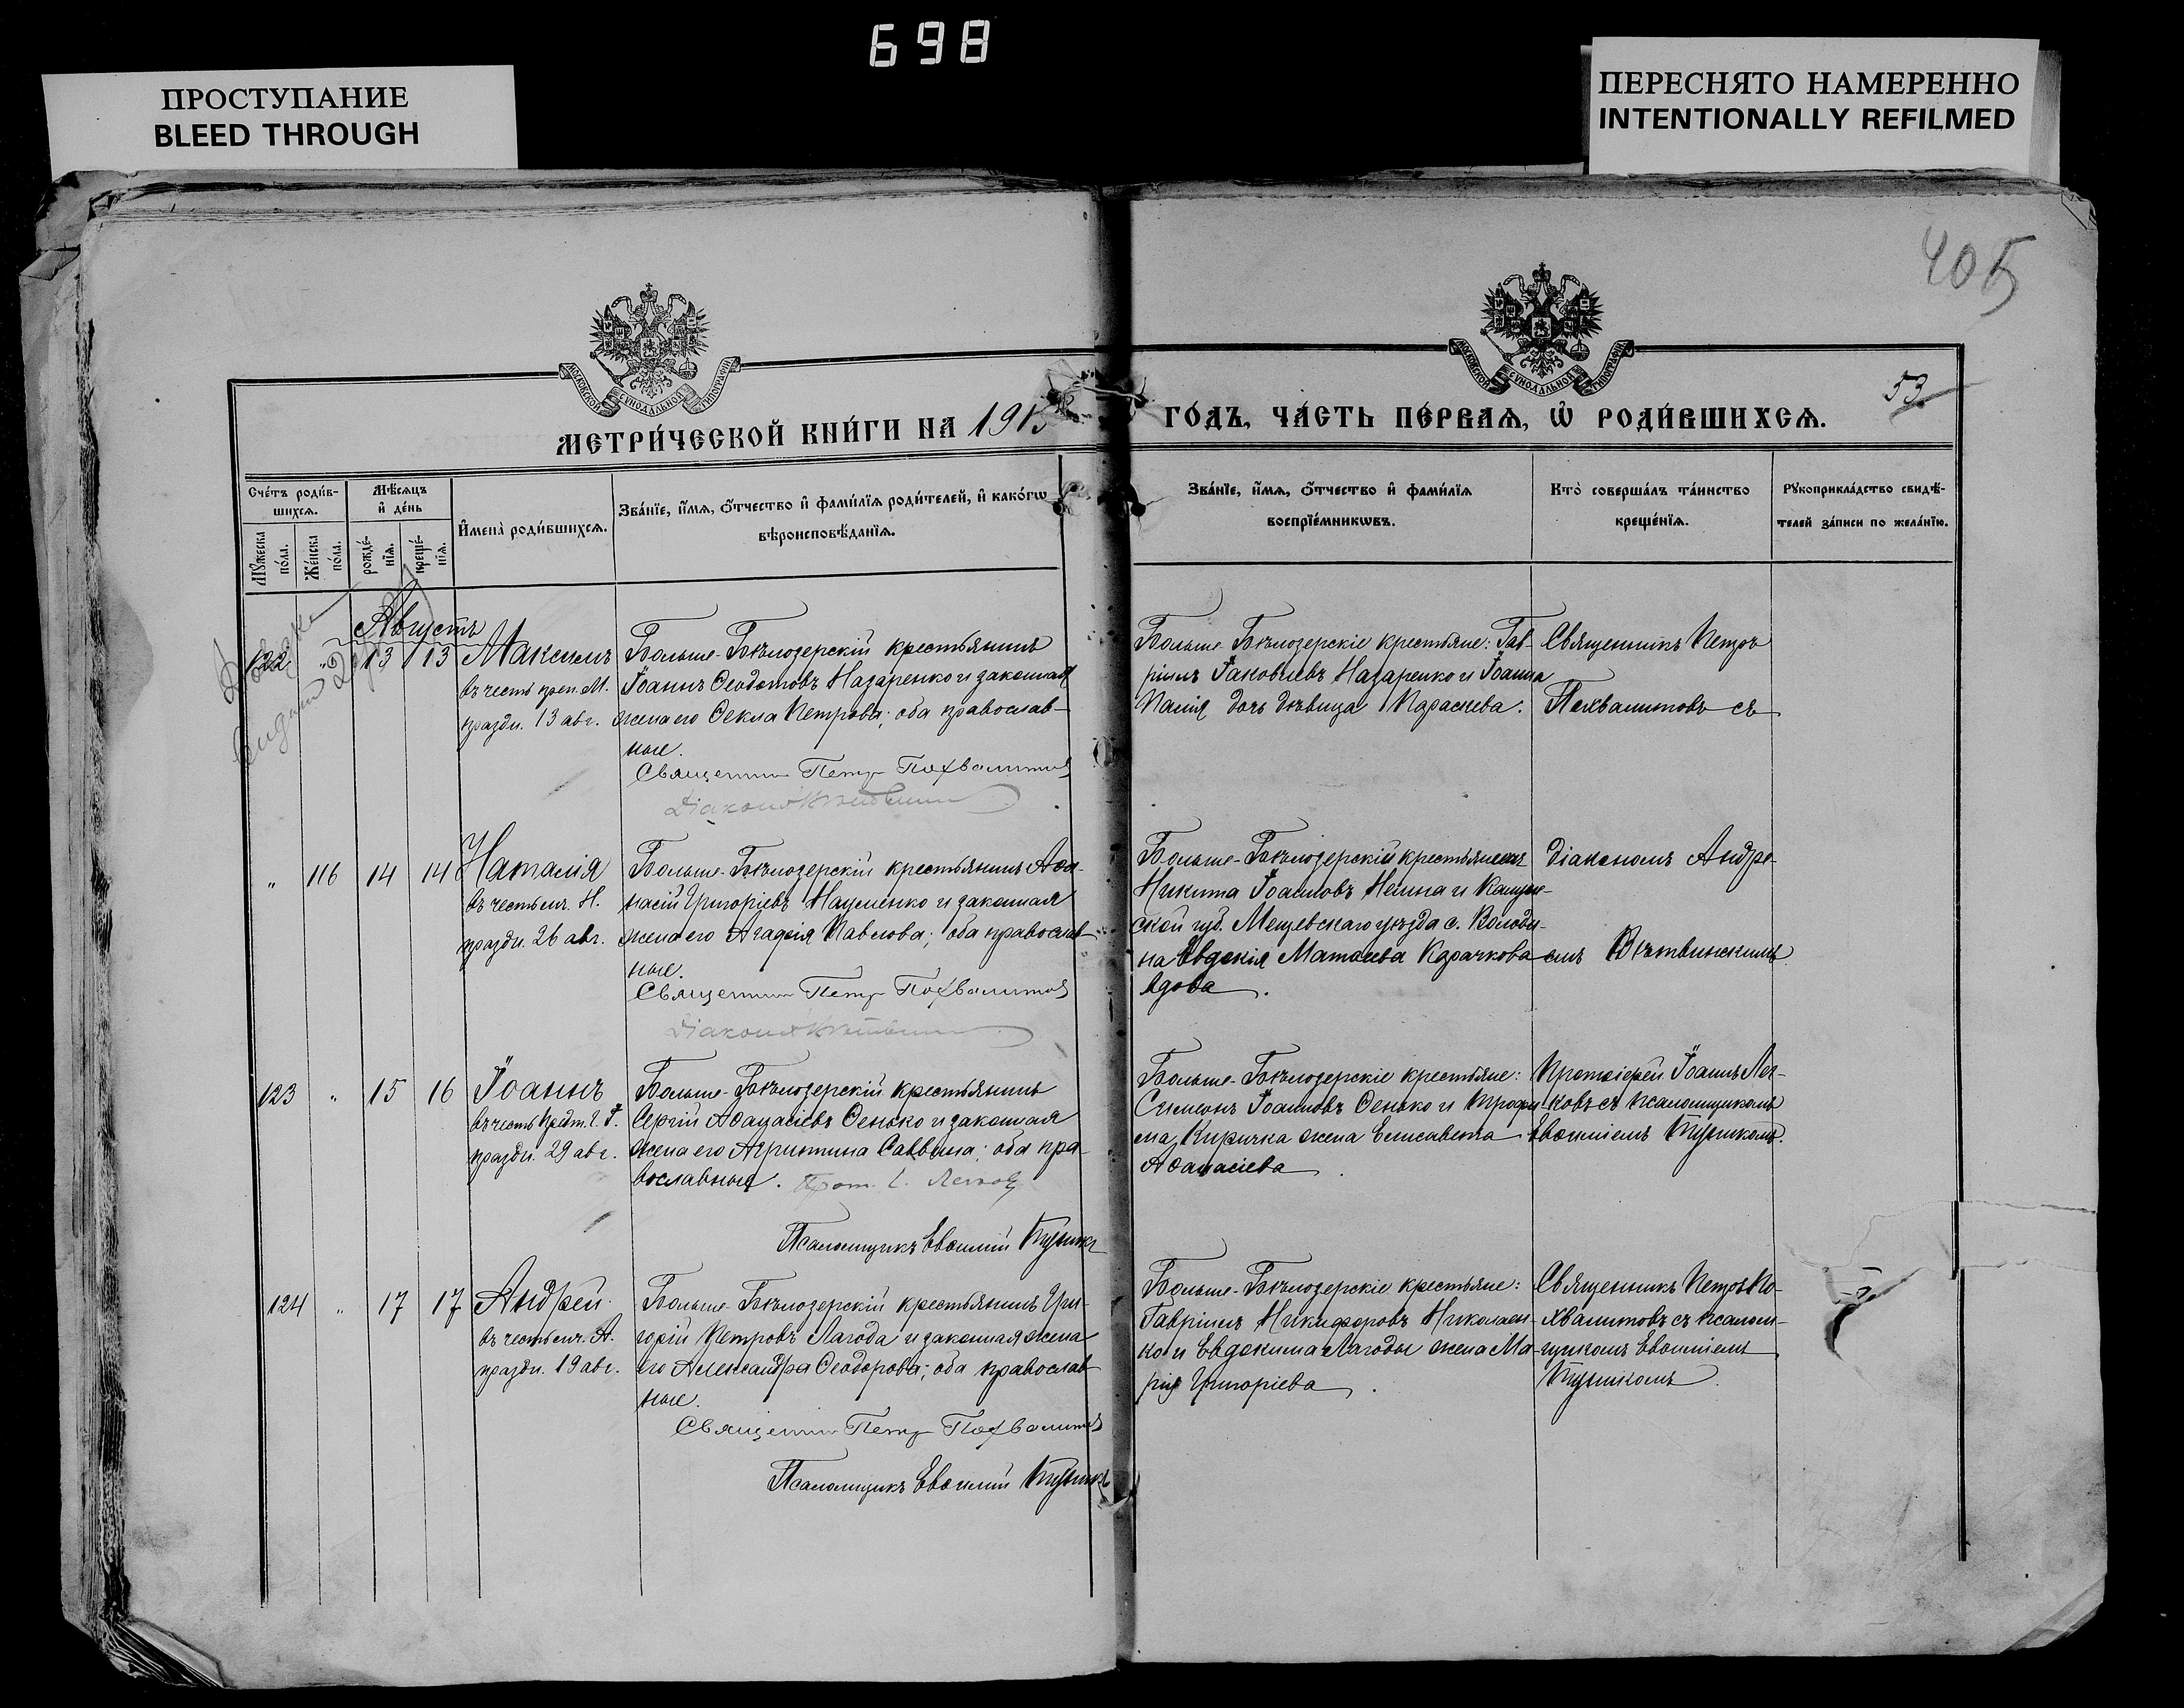 698
ПРОСТУПАНИЕ
BLEED THROUGH
ПЕРЕСНЯТО НАМЕРЕННО
INTENTIONALLY REFILMED
405
53
МОСКОВСКОЙ СУНОДАЛЬНОЙ ТИПОГРАФІИ
МОСКОВСКОЙ СУНОДАЛЬНОЙ ТИПОГРАФІИ
МЕТРИ́ЧЕСКОЙ КНИ́ГИ НА 1913
ГО́ДЪ, ЧА́СТЬ ПЕ́РВАѦ, Ѽ РОДИ́ВШИХСѦ.
Сче́тъ роди́в-
шихсѧ.
Мѣ́сѧцъ
и҆ де́нь
Мꙋ́жеска
по́ла.
Же́нска
по́ла.
рожде́-
нїѧ.
креще́-
нїѧ.
И҆мена̀ роди́вшихсѧ.
Зва́нїе, и҆́мѧ, ѻ҆́тчество и҆ фами́лїѧ роди́телей, и҆ како́гѡ
вѣроисповѣ́данїѧ.
Зва́нїе, и҆́мѧ, ѻ҆́тчество и҆ фами́лїѧ
воспрїе́мникѡвъ.
Кто̀ соверша́лъ та́инство
креще́нїѧ.
Рꙋкоприкла́дство свидѣ́-
телей за́писи по жела́нїю.
Августъ
122 " 13 13 Максимъ
въ честь преп. М.
праздн. 13 авг.
Больше-Бѣлозерскій крестьянинъ
Іоаннъ Ѳеодотовъ Назаренко и законная
жена его Ѳекла Петрова; оба православ-
ные.
Священник Петр Похвалитов
Діаконъ
Больше-Бѣлозерскіе крестьяне: Гав-
ріилъ Іаковлевъ Назаренко и Іоанна
дочь дѣвица Параскева.
Священникъ Петръ
Похвалитовъ съ
" 116 14 14 Наталія
въ честь мч. Н.
праздн. 26 авг.
Больше-Бѣлозерскій крестьянинъ Аѳа-
насій Григоріевъ Науменко и законная
жена его Агафія Павлова; оба православ-
ные.
Священник Петр Похвалитов
Діаконъ
Больше-Бѣлозерскій крестьянинъ
Никита Іоанновъ Непша и Калуж-
ской губ. Мещевскаго уѣзда с. Володи-
на Евдокія Матѳеева Карачкова
вдова.
діакономъ Андре-
емъ Вѣтвинскимъ.
123 " 15 16 Іоаннъ
въ честь Предт. І.
праздн. 29 авг.
Больше-Бѣлозерскій крестьянинъ
Сергій Аѳанасіевъ Сенько и законная
жена его Агриппина Саввина; оба пра-
вославные. Прот. І. Легков
Псаломщикъ Евѳимій
Больше-Бѣлозерскіе крестьяне:
Симеонъ Іоанновъ Сенько и Трофи-
ма Киричка жена Елисавета
Аѳанасіева.
Протоіерей Іоаннъ Лег-
ковъ съ псаломщикомъ
Евѳиміемъ
124 " 17 17 Андрей
въ честь мч. А.
праздн. 19 авг.
Больше-Бѣлозерскій крестьянинъ Гри-
горій Петровъ Лагода и законная жена
его Александра Ѳеодорова; оба православ-
ные.
Священник Петр Похвалитов
Псаломщикъ Евѳимій
Больше-Бѣлозерскіе крестьяне:
Гавріилъ Никифоровъ Николаен-
ко и Евдокима Лагоды жена Ма-
рія Григоріева.
Священникъ Петръ По-
хвалитовъ съ псалом-
щикомъ Евѳиміемъ